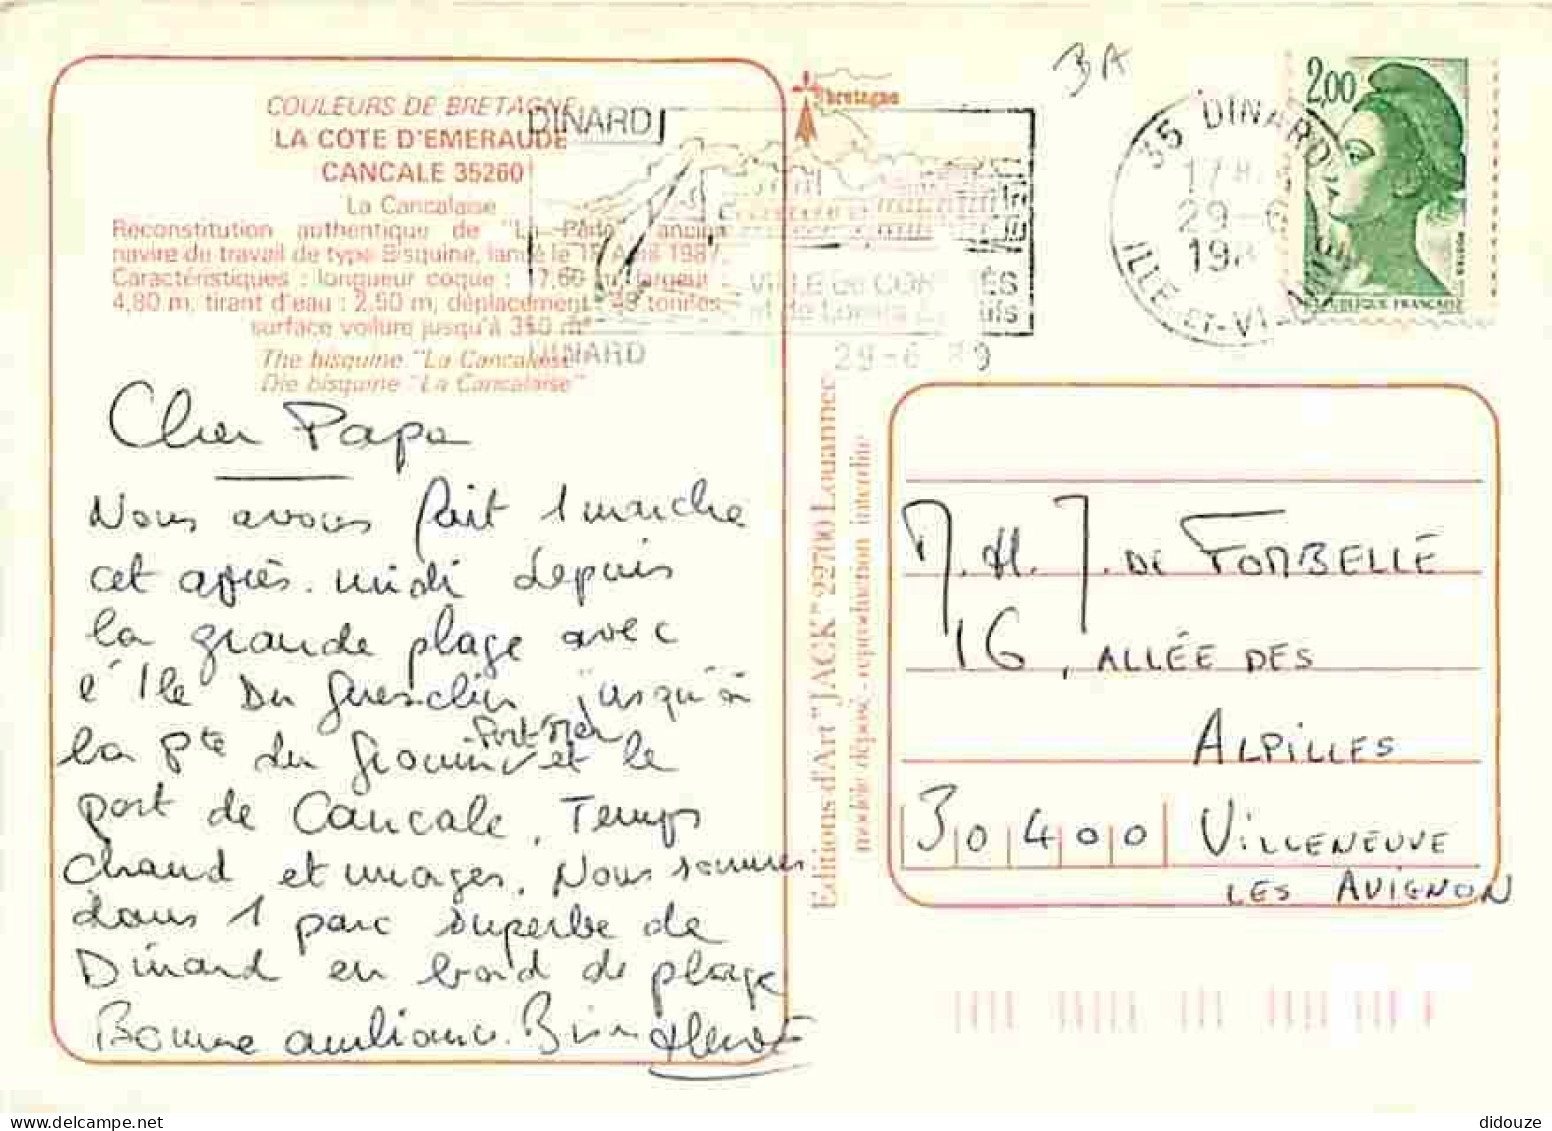 COULEURS DE BRETAGNE
LA COTE D'EMERAUDE
CANCALE 35260
La Cancalaise
Reconstitution authentique de "La Perle" ancien
navire de travail de type Bisquine, lancé le 18 Avril 1987.
Caractéristiques : longueur coque : 17,60 m, largeur :
4,80 m, tirant d'eau : 2,50 m, déplacement : tonnes
surface voilure jusqu'à 350 m²
The bisquine "La Cancalaise"
Die bisquine "La Cancalaise"
Cher Papa
Nous avons fait 1 marche
cet après-midi depuis
la grande plage avec
l'Ile Du Guesclin jusqu'à
la Pte du Grouin et le
Port Mer
port de Cancale. Temps
chaud et nuages. Nous sommes
dans 1 parc superbe de
Dinard en bord de plage
Bonne ambiance. Bien
Hervé
DINARD
VILLE de CONGRÈS
et de Loisirs Sportifs
DINARD
29-6 89
bretagne
3A
35 DINARD
17H
29-6
198
ILLE-ET-VILAINE
2,00
RÉPUBLIQUE FRANÇAISE
Editions d'Art "JACK" 22700 Louannec
modèle déposé - reproduction interdite
M. H. J. DE FOMBELLE
16, ALLÉE DES
ALPILLES
30400 VILLENEUVE
LES AVIGNON
didouze